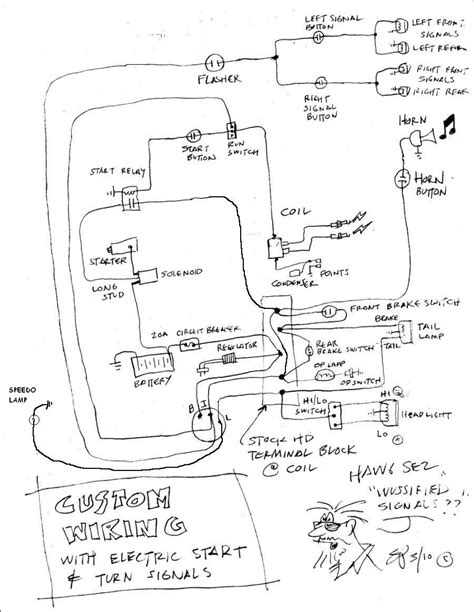 LEFT SIGNAL
BUTTON
LEFT FRONT
SIGNALS
LEFT REAR
FLASHER
RIGHT FRONT
SIGNALS
RIGHT REAR
RIGHT
SIGNAL
BUTTON
HORN
START
BUTTON
RUN
SWITCH
START RELAY
HORN
BUTTON
COIL
STARTER
SOLENOID
LONG
STUD
POINTS
CONDENSER
FRONT BRAKE SWITCH
BRAKE
20A CIRCUIT BREAKER
TAIL
LAMP
REAR
BRAKE SWITCH
TAIL
REGULATOR
OP LAMP
OP SWITCH
BATTERY
SPEEDO
LAMP
B
I
L
HI/LO
SWITCH
HI
HEADLIGHT
LO
STOCK HD
TERMINAL BLOCK
@ COIL
CUSTOM
WIRING
WITH ELECTRIC START
& TURN SIGNALS
HAWG SEZ
"WUSSIFIED
SIGNALS??
3/10 ©